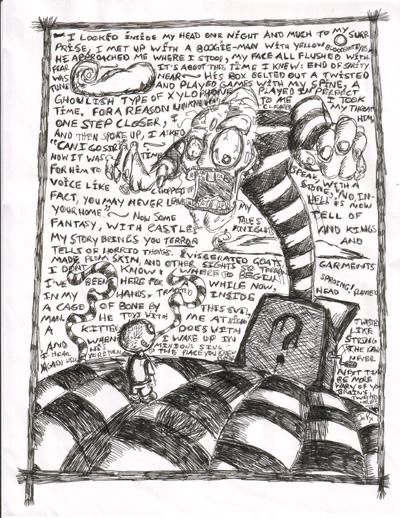 ~I LOOKED INSIDE MY HEAD ONE NIGHT AND MUCH TO MY SUR
PRISE, I MET UP WITH A BOOGIE-MAN WITH YELLOW BLOODSHOT EYES.
HE APPROACHED ME WHERE I STOOD, MY FACE ALL FLUSHED WITH
FEAR IT'S ABOUT THIS TIME I KNEW: END OF SANITY
WAS NEAR~ HIS BOX BELTED OUT A TWISTED
TUNE AND PLAYED GAMES WITH MY SPINE, A
GHOULISH TYPE OF XYLOPHONE PLAYED IN PERFECT
TIME. FOR A REASON UNKNOWN TO ME I TOOK
ONE STEP CLOSER, CLEARED MY THROAT
AND THEN SPOKE UP, I ASKED HIM,
"CAN I GO SIR?" TIME
NOW IT WAS
FOR HIM TO SPEAK, WITH A
VOICE LIKE CHOPPED UP STONE, "NO, IN
FACT, YOU MAY NEVER LEAVE HELL IS NOW
YOUR HOME."~ NOW SOME MY TELL OF
FANTASY, WITH CASTLES TALES AND KINGS
MY STORY BRINGS YOU TERROR KNIGHTS AND
TELLS OF HORRID THINGS. EVISCERATED GOATS,
MADE FROM SKIN, AND OTHER SIGHTS GARMENTS
I DON'T KNOW WHERE TO
I'VE BEEN HERE FOR A WHILE NOW, HEAD
IN MY HANDS, TRAPPED INSIDE
A CAGE OF BONE BY THIS EVIL
MAN. HE TOYS WITH ME AT
A KITTEN DOES WITH TWISTED
AND WHEN I WAKE UP IN LIKE
I HEAR HE'S STRING
AGAIN THE PLACE YOU KNEW NEVER
NEXT TIME
BE MORE
WARY OF YOUR
BRAINS,
?